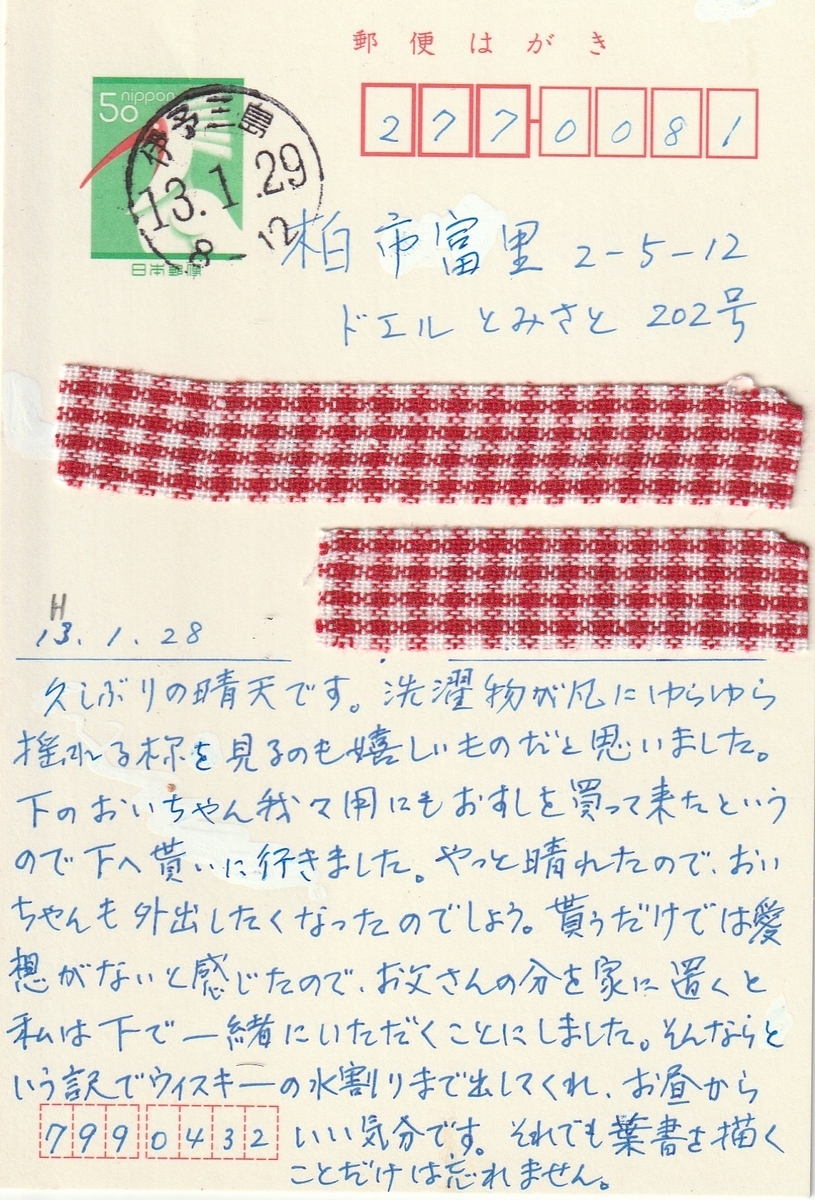 郵便はがき
50 nippon
日本郵便
伊予三島
13.1.29
8-12
277-0081
柏市富里 2-5-12
ドエル とみさと 202号
H
13.1.28
久しぶりの晴天です。洗濯物が風にゆらゆら
揺れる様を見るのも嬉しいものだと思いました。
下のおいちゃん我々用にもおすしを買って来たという
ので下へ貰いに行きました。やっと晴れたので、おい
ちゃんも外出したくなったのでしょう。貰うだけでは愛
想がないと感じたので、お父さんの分を家に置くと
私は下で一緒にいただくことにしました。そんならと
いう訳でウィスキーの水割りまで出してくれ、お昼から
いい気分です。それでも葉書を描く
ことだけは忘れません。
7990432